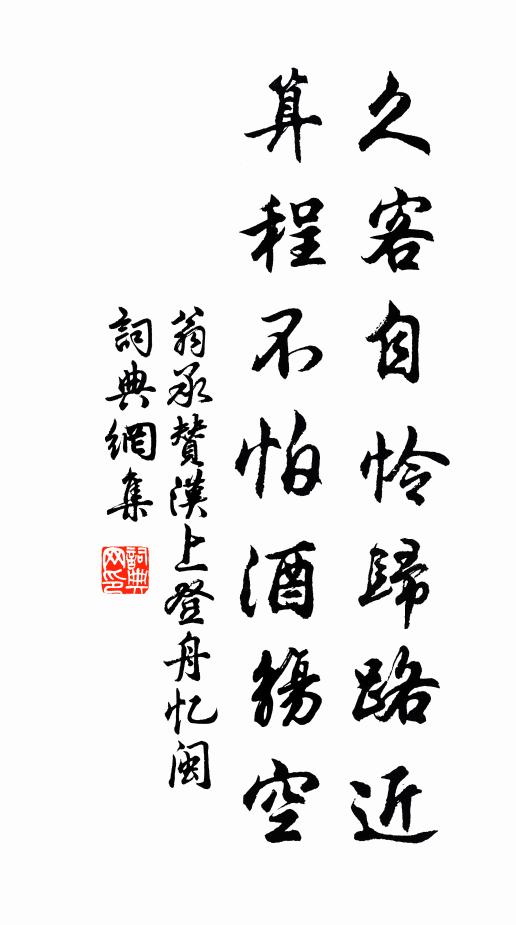 久客自怜歸路近
算程不怕酒觴空
翁承贊漢上登舟忆閩
詞典網集
詞典网印